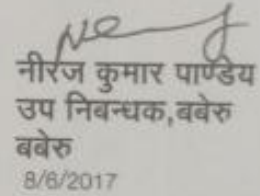 नीरज कुमार पाण्डेय
उप निबन्धक,बबेरु
बबेरु
8/6/2017